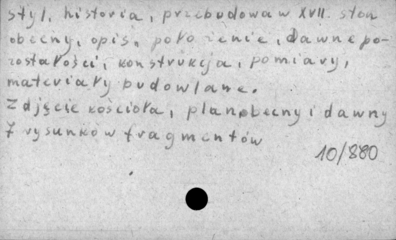 styl, historia, przebudowa w XVII. stan
obecny, opis, położenie, dawne po-
zostałości, konstrukcja, pomiary,
materiały budowlane.
Zdjęcie kościoła, plan obecny i dawny
7 rysunków fragmentów
10/880